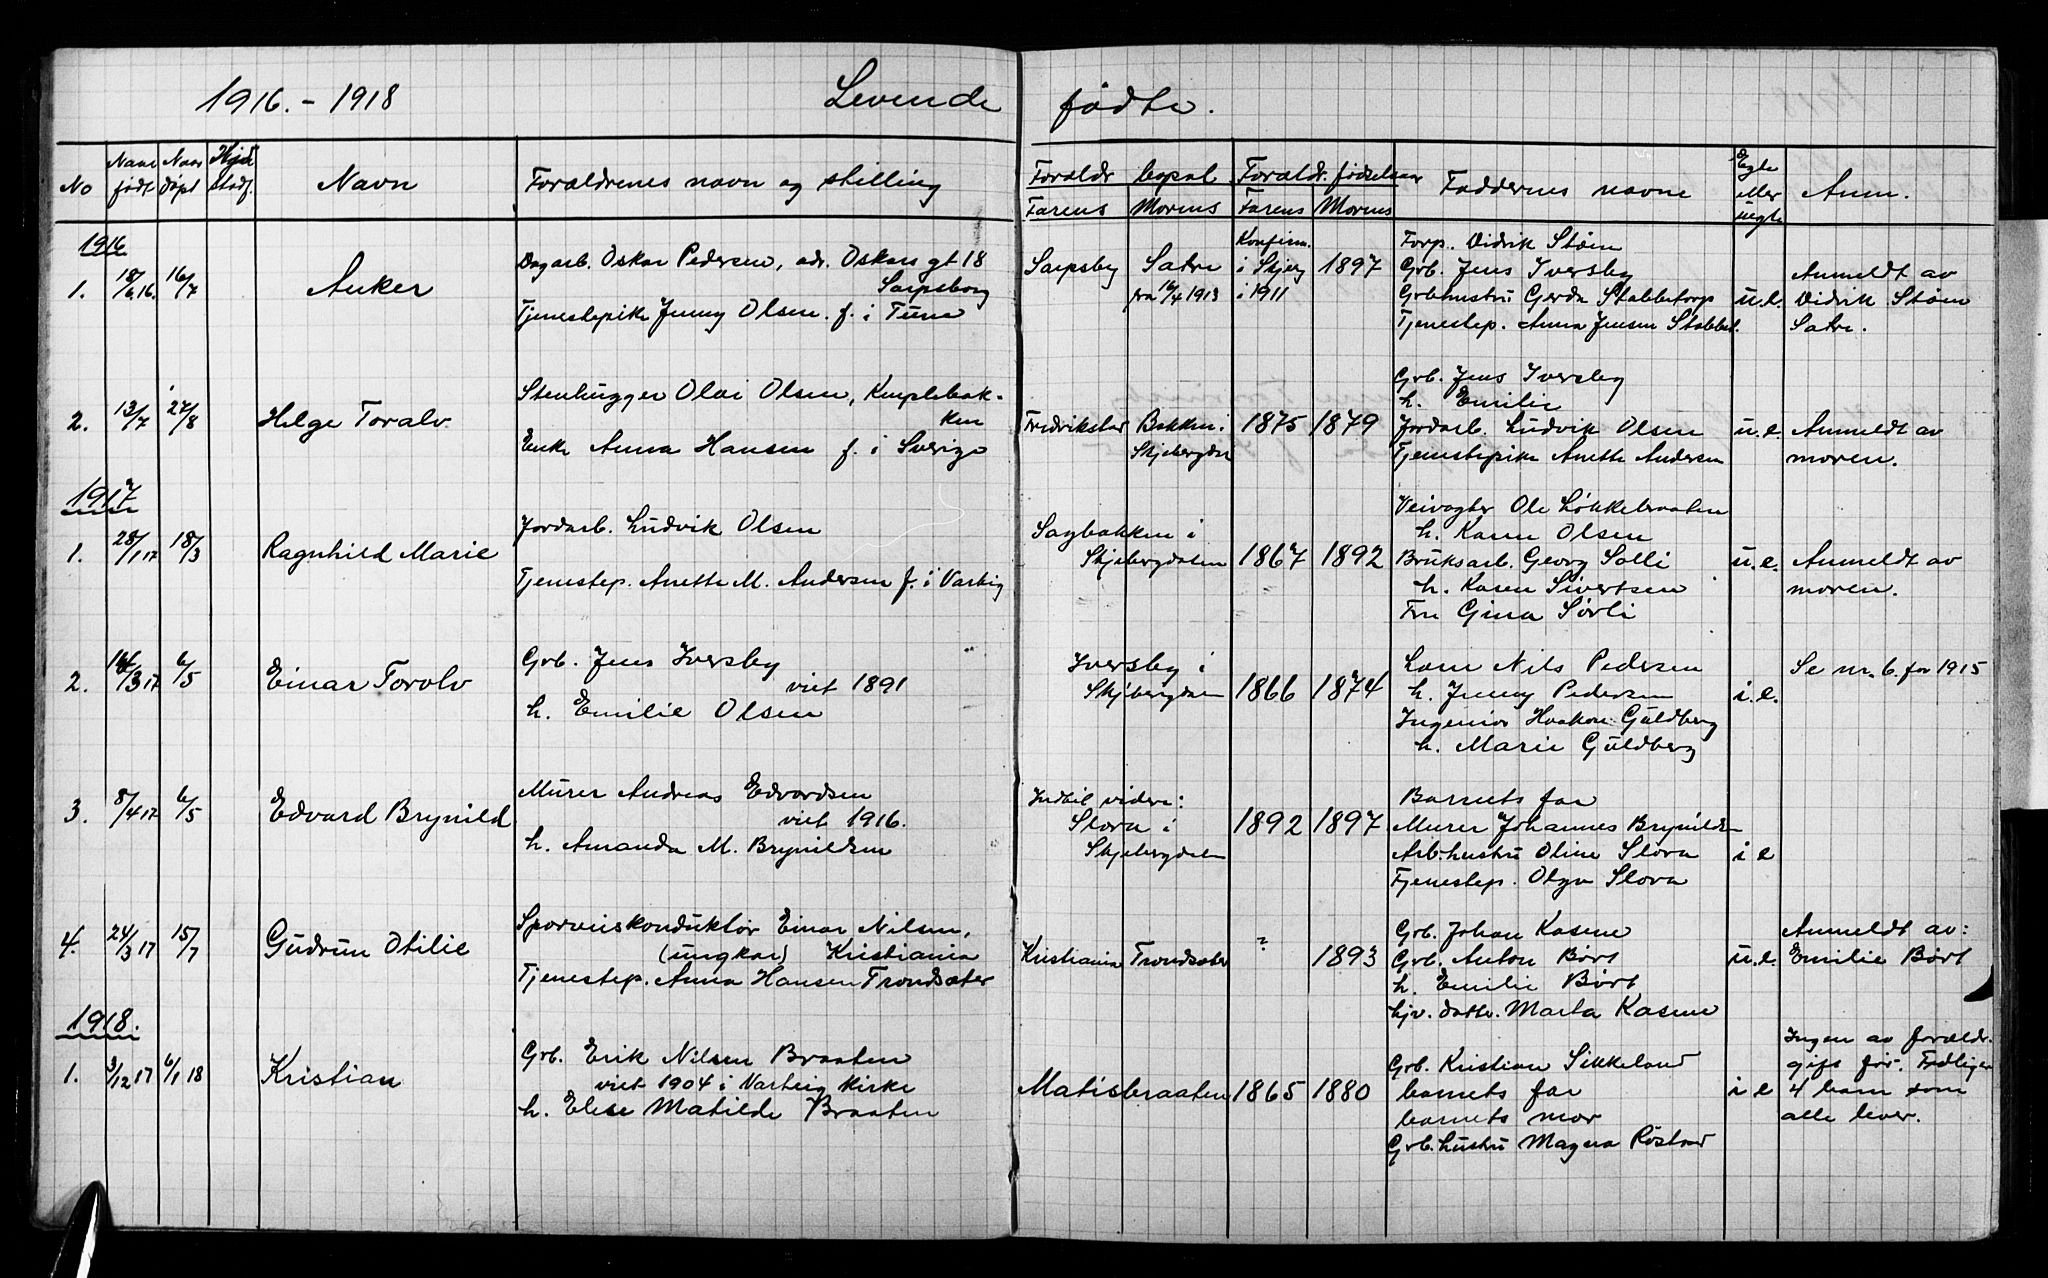 1916. - 1918 Levende fødte.
No Naar født Naar døpt Hjdt stadf. Navn Forældrenes navn og stilling
Forældr. bopæl Forældr. fødselsaar Faddernes navne Egte eller uegte Anm.
Farens Morens Farens Morens
1916
1. 18/6 16. 16/7 Anker
Dagarb. Oskar Pedersen, adr. Oskars gt 18
Sarpsborg
Tjenestepike Jenny Olsen. f. i Tune
Sarpsbg Satre
fra 16/4 1913
Konfirm.
i Skjeg
i 1911
1897
Forp. Vidrik Støen
Grb. Jens Iversby
Grbhustru Gerda Stabbetorp
Tjenestep. Anna Jensen Stabbet.
u.e.
Anmeldt av
Vidrik Støen
Satre.
2. 13/7 27/8 Helge Toralv
Stenhugger Olai Olsen, Kneplebak-
ken
Enke Anna Hansen f. i Sverige
Fredrikstad Bakken i
Skjebergdal
1875 1879
Grb. Jens Iversby
h. Emilie
Jordarb. Ludvik Olsen
Tjenestepike Anette Andersen
u.e.
Anmeldt av
moren.
1917
1. 28/1 17 18/3 Ragnhild Marie
Jordarb. Ludvik Olsen
Tjenestep. Anette M. Andersen f. i Varteig
Sagbakken i
Skjebergdalen
1867 1892
Veivogter Ole Løkkebraaten
h. Karen Olsen
Bruksarb. Georg Solli
h. Karen Sivertsen
Fru Gina Sørli
u.e.
Anmeldt av
moren.
2. 14/3 17 6/5 Einar Torolv
Grb. Jens Iversby
viet 1891
h. Emilie Olsen
Iversby i
Skjebergdalen
1866 1874
Lam Nils Pedersen
h. Jenny Pedersen
Ingeniør Haakon Guldberg
h. Marie Guldberg
i.e.
Se nr. 6. for 1915
3. 8/4 17 6/5 Edvard Brynild
Murer Andreas Edvardsen
viet 1916.
h. Amanda M. Brynildsen
Indtil videre:
Slora i
Skjebergdalen
1892 1897
Barnets far
Murer Johannes Brynildsen
Arb.hustru Oline Slora
Tjenestep. Olga Slora
i e
4. 24/3 17 15/7 Gudrun Otilie
Sporveiskonduktør Einar Nilsen,
(ungkar) Kristiania
Tjenestep. Anna Hansen Trondsæter
Kristiania Trondsæter
? 1893
Grb. Johan Kasene
Grb. Anton Børt
h. Emilie Børt
hjv. datter. Marta Kasene
u.e.
Anmeldt av:
Emilie Børt
1918.
1. 3/12 17 6/1 18 Kristian
Grb. Erik Nilsen Braaten
viet 1904 i Varteig kirke
h. Elise Matilde Braaten
Matisbraaten
1865 1880
Grb. Kristian Sikkeland
barnets far
barnets mor
Grb.hustru Magna Røstad
i e
Ingen av forældr.
gift før. Tidligere
4 barn som
alle lever.